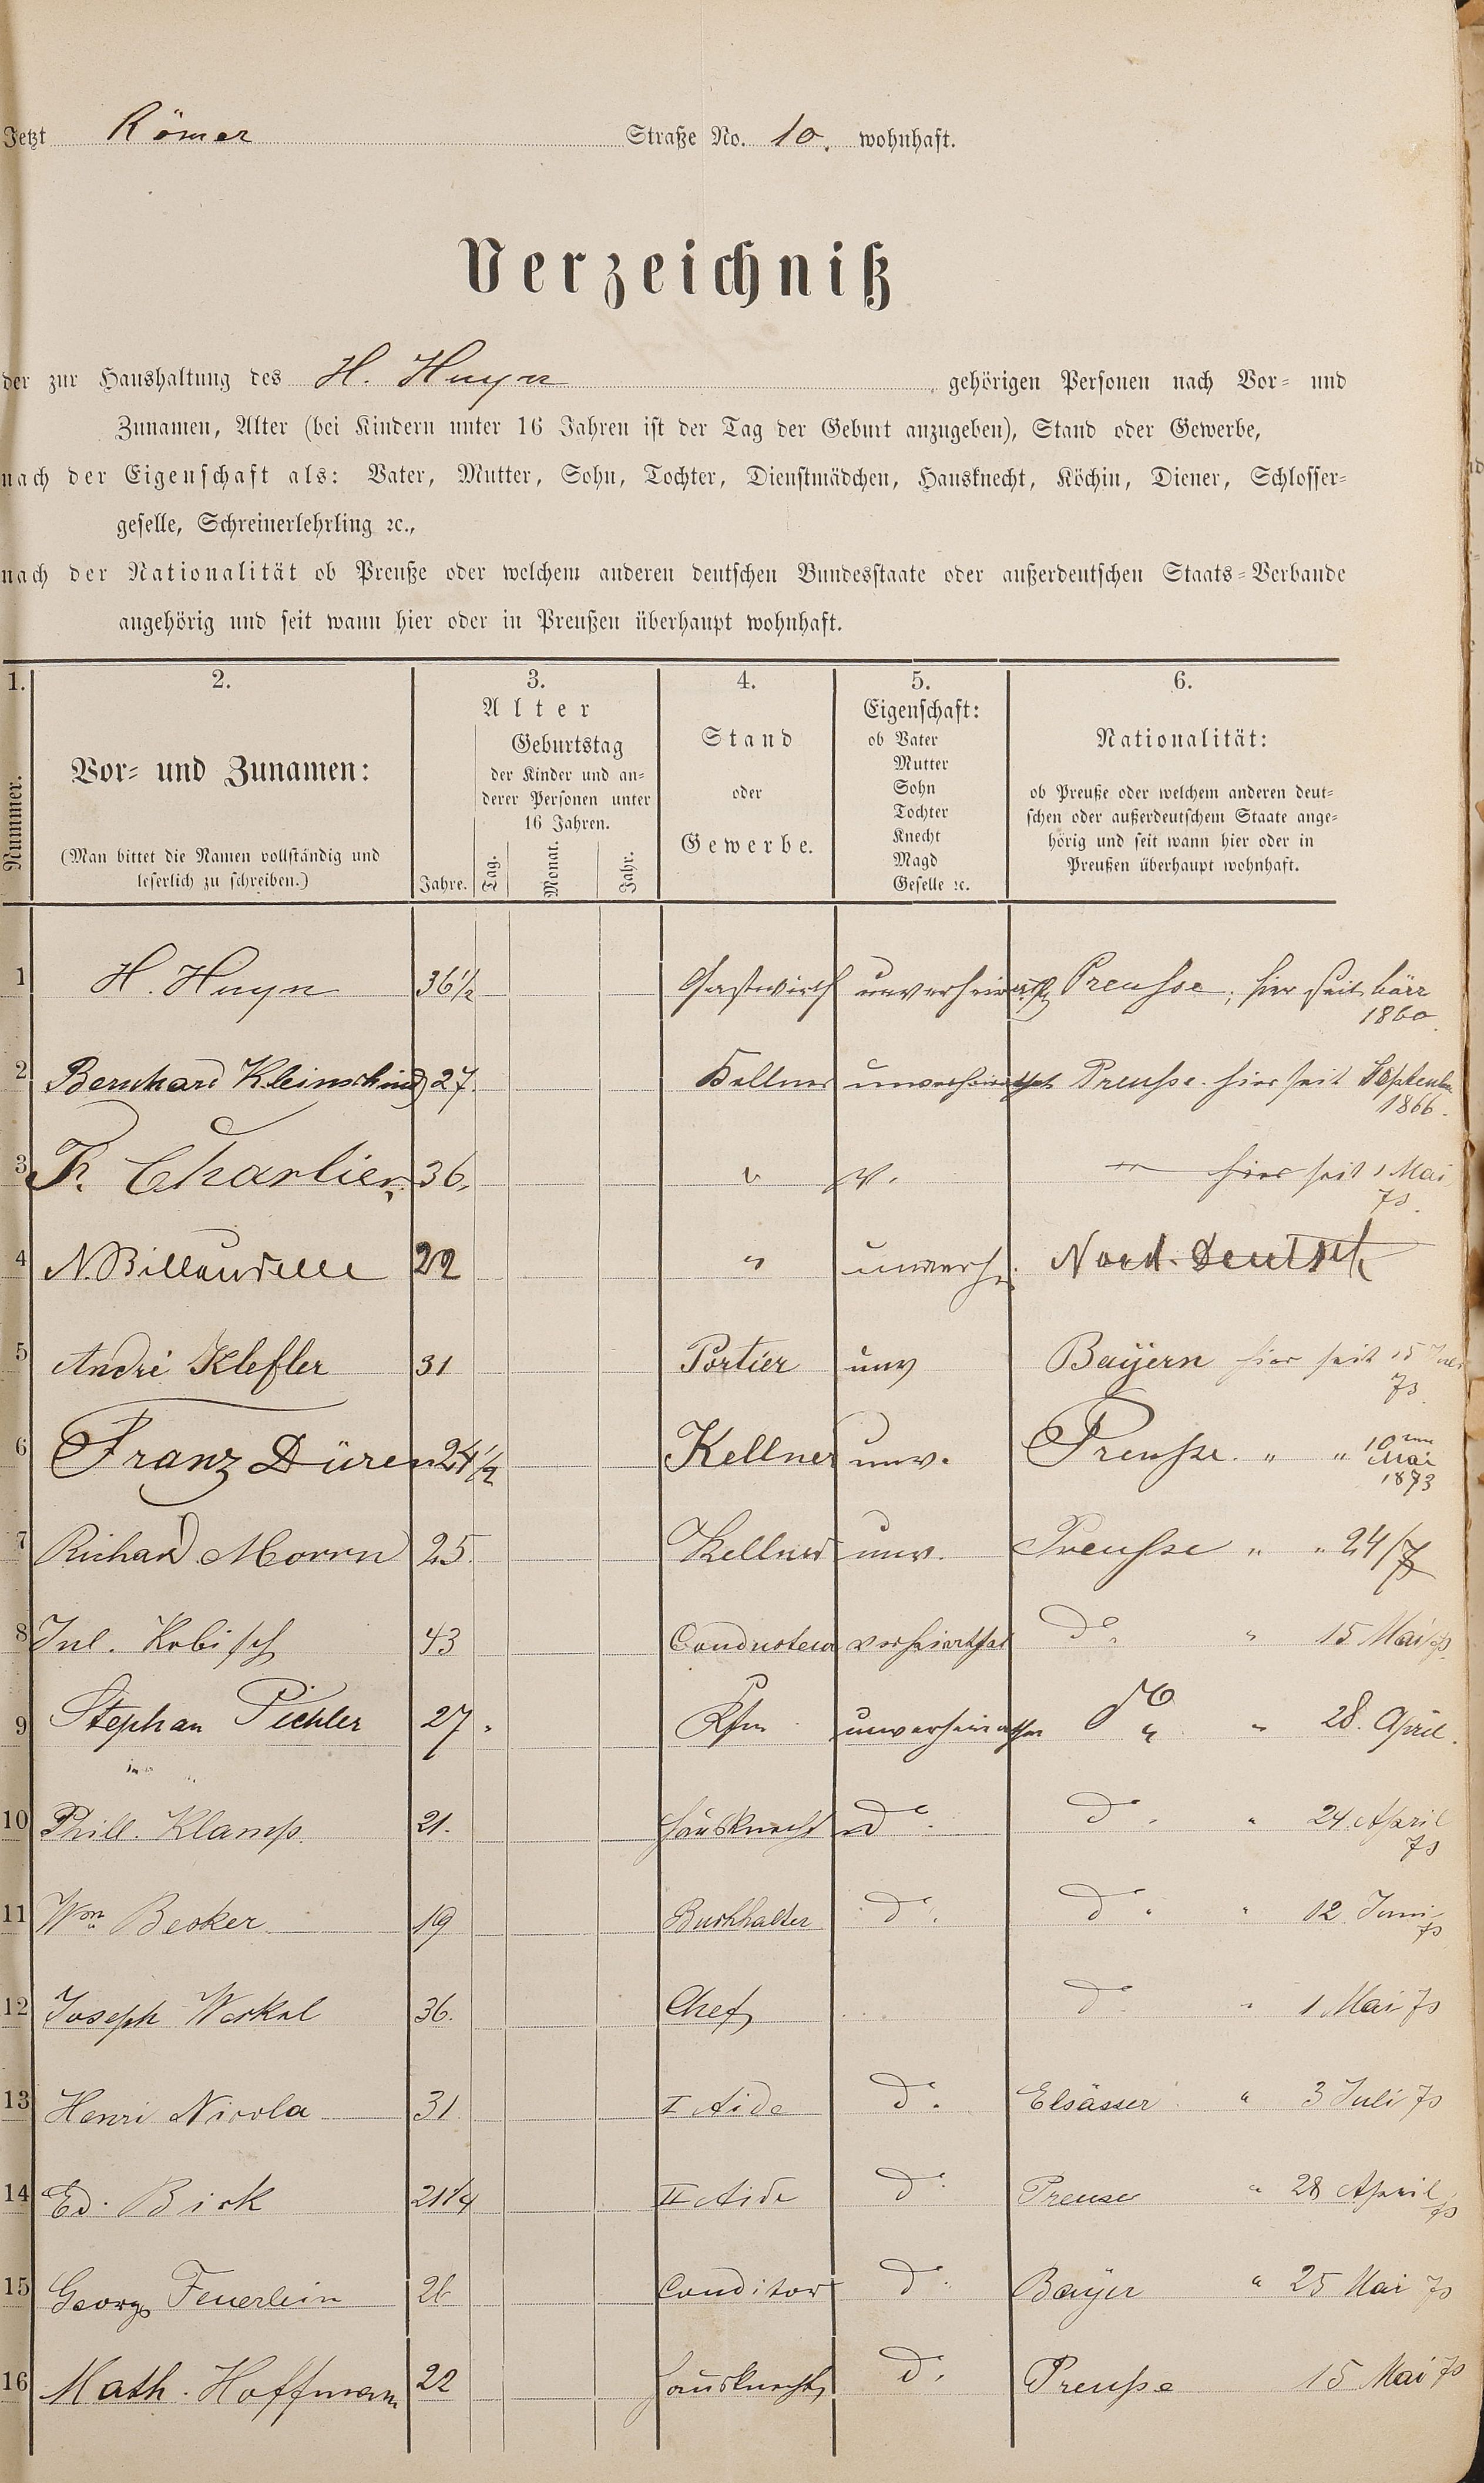 Jetzt Römer Straße No. 10. wohnhaft.
Verzeichniß
der zur Haushaltung des H. Huyn gehörigen Personen nach Vor- und
Zunamen, Alter (bei Kindern unter 16 Jahren ist der Tag der Geburt anzugeben), Stand oder Gewerbe,
nach der Eigenschaft als: Vater, Mutter, Sohn, Tochter, Dienstmädchen, Hausknecht, Köchin, Diener, Schlosser-
geselle, Schreinerlehrling ꝛc.,
nach der Nationalität ob Preuße oder welchem anderen deutschen Bundesstaate oder außerdeutschen Staats-Verbande
angehörig und seit wann hier oder in Preußen überhaupt wohnhaft.
1.
Nummer.
2.
Vor- und Zunamen:
(Man bittet die Namen vollständig und
leserlich zu schreiben.)
3.
Alter
Jahre.
Geburtstag
der Kinder und an-
derer Personen unter
16 Jahren.
Tag. Monat. Jahr.
4.
Stand
oder
Gewerbe.
5.
Eigenschaft:
ob Vater
Mutter
Sohn
Tochter
Knecht
Magd
Geselle ꝛc.
6.
Nationalität:
ob Preuße oder welchem anderen deut-
schen oder außerdeutschem Staate ange-
hörig und seit wann hier oder in
Preußen überhaupt wohnhaft.
1 H. Huyn 36½ Gastwirth unverheirath Preusse, hier seit
1860.
2 Bernhard Kleinschmid 27 Kellner unverheirathet Preusse. hier seit September
1866.
3 Charlier 36, " " hier seit 1 Mai
73.
4 N. Billaudelle 22 " unverh. Nord. Deutsch
5 André Klefler 31 Portier unv Bayern hier seit 15 Juli
73.
6 Franz Düren 24½ Kellner unv. Preusse. " " 10 Mai
1873
7 Richard Morrn 25. Kellner unv. Preusse " " 24/7
8 Jul. Kobisch 43 Conducteur verheirathet do. " 15 Mai 73.
9 Stephan Pichler 27. Kfm unverheirathet do " " 28. April.
10 Phill. Klamp. 21. Hausknecht do. do. " 24. April
73
11 Wm Becker 19 Buchhalter do. do. " 12. Juni
73
12 Joseph 36. Chef do. " 1 Mai 73
13 Henri Nicola 31 I Aide do. Elsässer " 3 Juli 73
14 Ed. Bick 21¼ II Aide do. Preuse " 28 April
73
15 Georg Feuerlein 26 Conditor do. Bayer " 25 Mai 73
16 Math. Hoffmann 22 Hausknecht do. Preusse 15 Mai 73